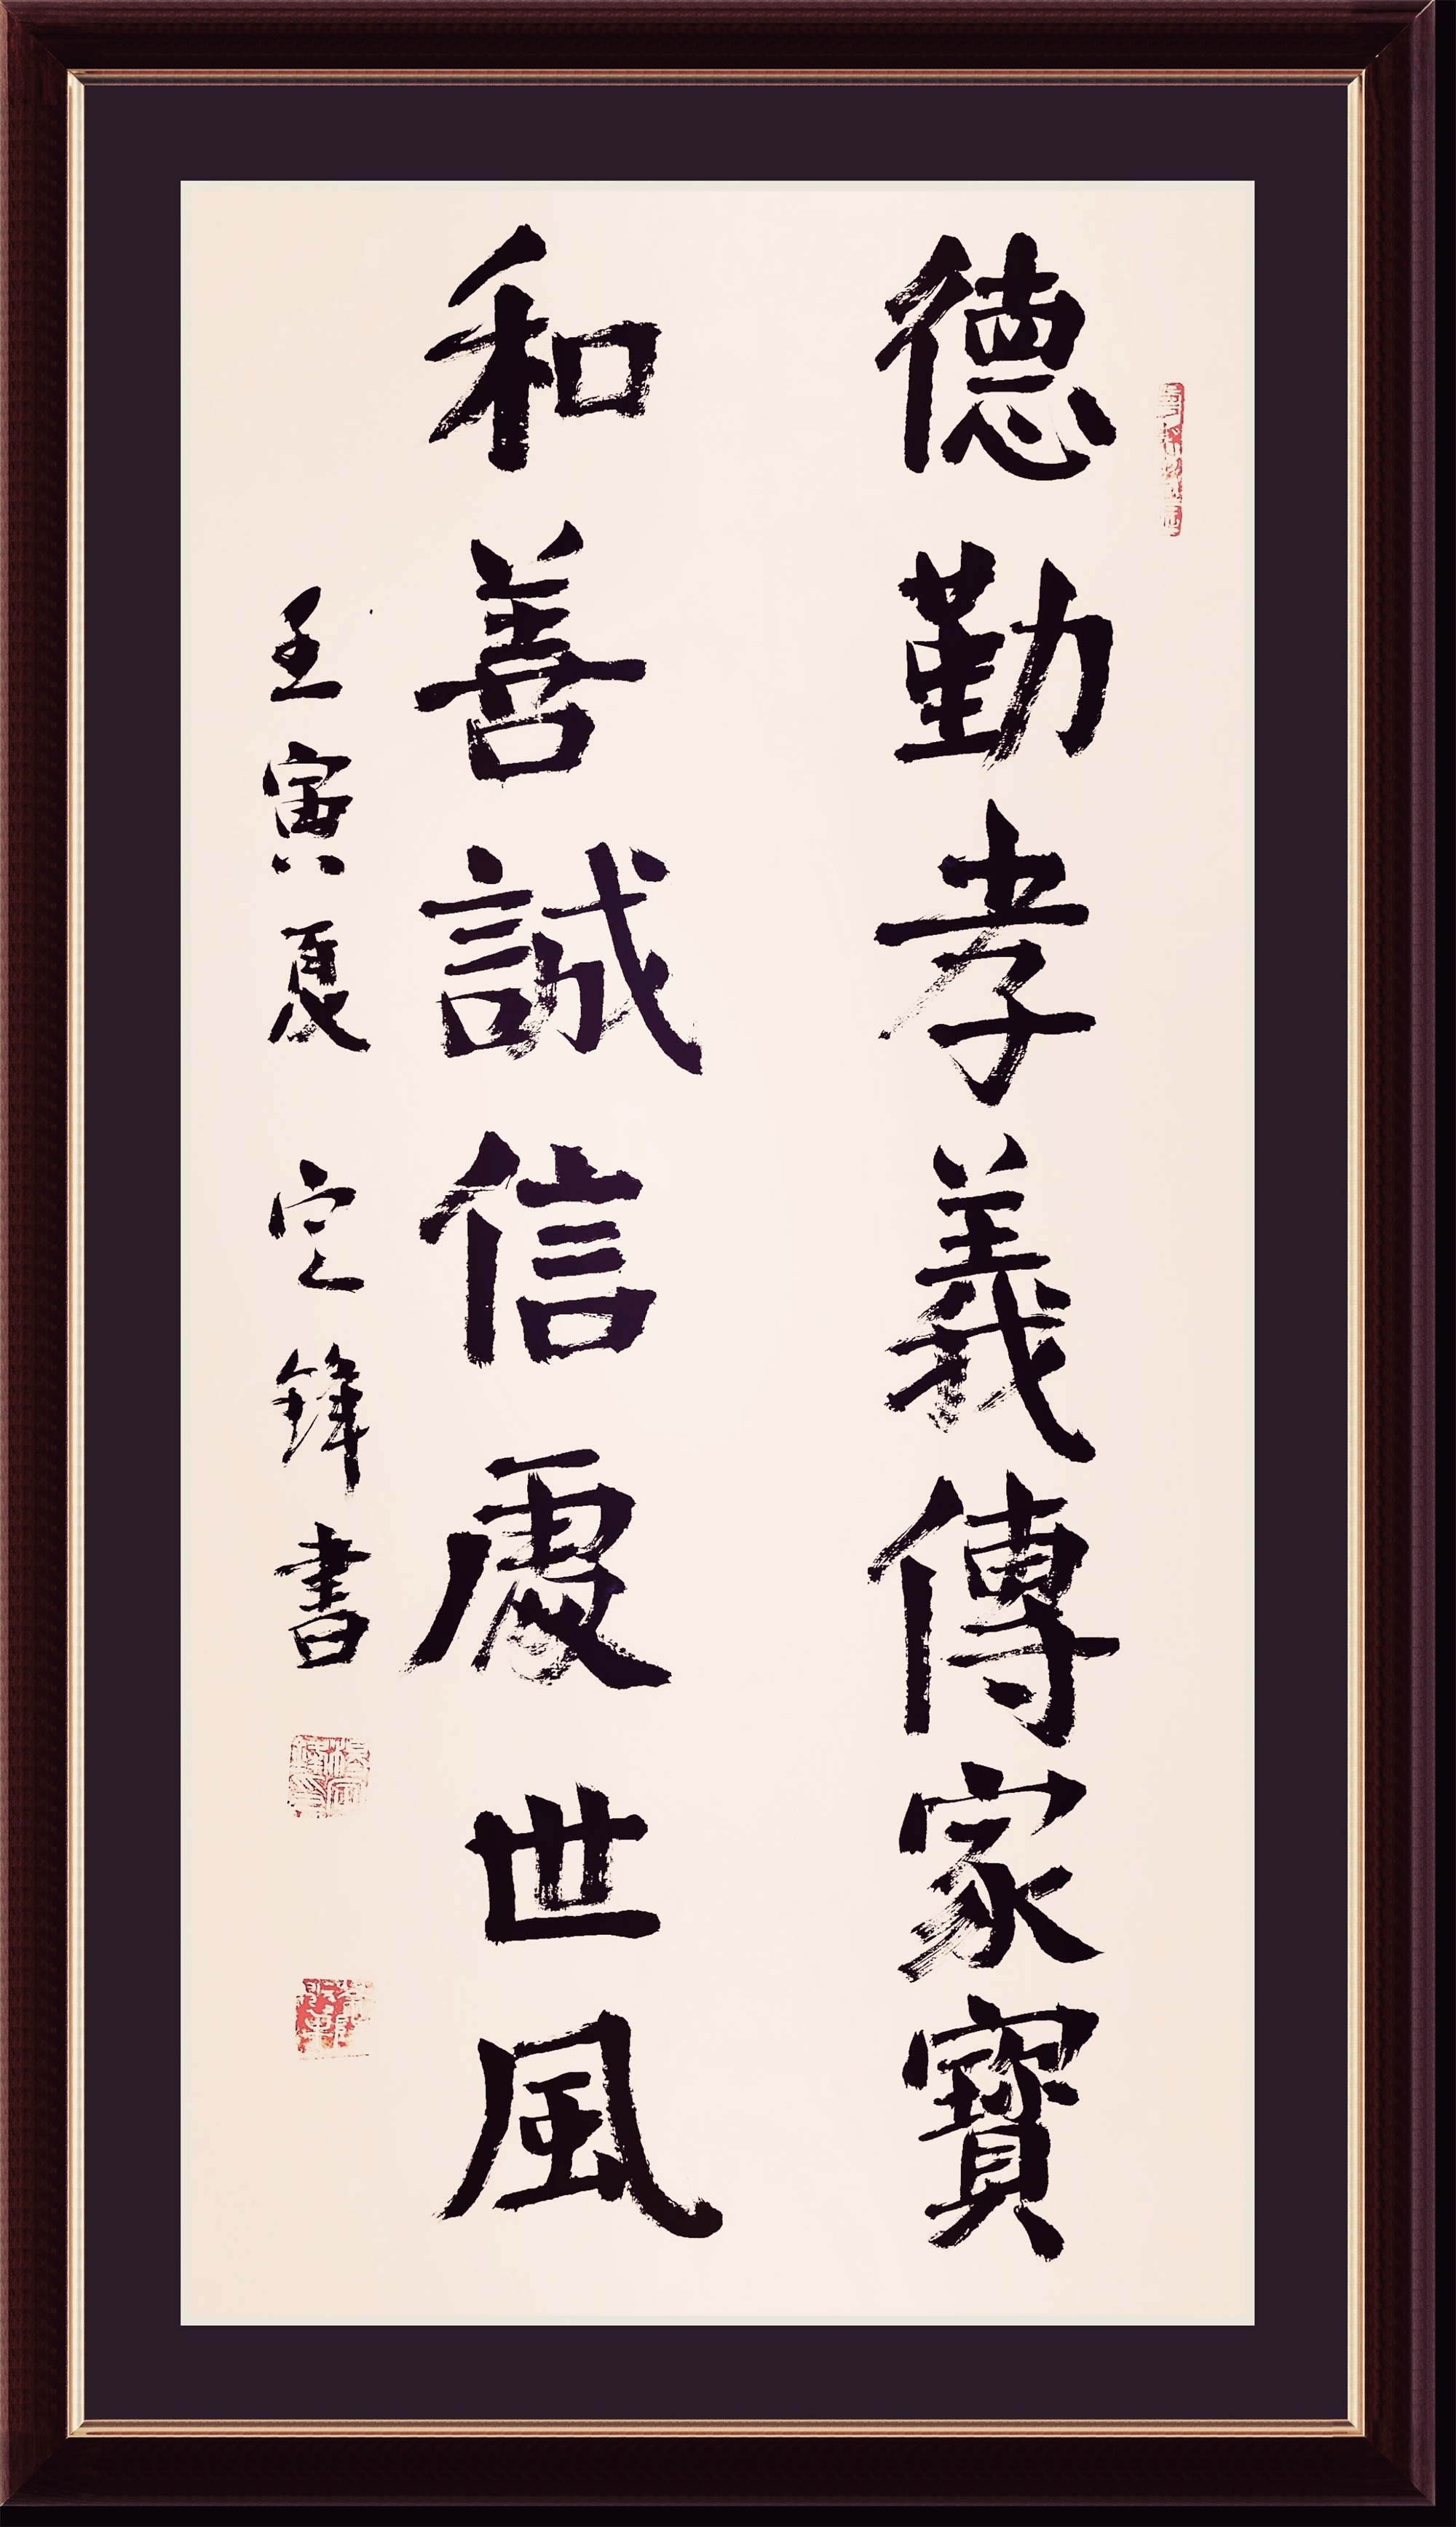 德勤孝義傳家寶
和善誠信處世風
壬寅夏 定鋒書